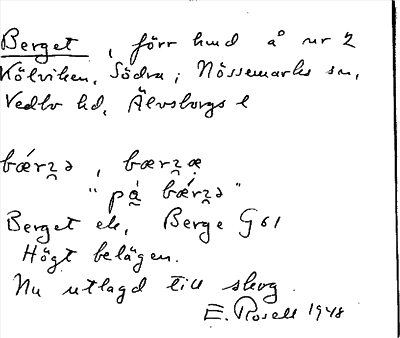 Berget, förr hmd å nr 2
Kölviken, Södra i Nössemarks sn,
Vedbo hd, Älvsborgs l
bǽrʒ̣ə, bærʒ̣æ
"på̀ bǽrʒ̣ə"
Berget ek, Berge G61
Högt belägen.
Nu utlagd till skog
E. Rosell 1948